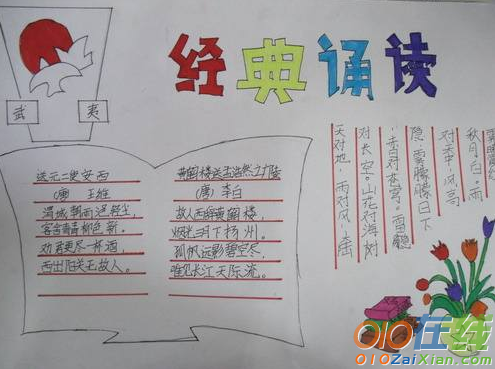 经典诵读
武 夷
送元二使安西
(唐) 王维
渭城朝雨浥轻尘,
客舍青青柳色新。
劝君更尽一杯酒,
西出阳关无故人。
黄鹤楼送孟浩然之广陵
(唐) 李白
故人西辞黄鹤楼,
烟花三月下扬州。
孤帆远影碧空尽,
唯见长江天际流。
天对地,雨对风。
对长空。山花对海树
,赤日对苍穹。雷隐
隐,雾朦朦。日下
对天中。风高
秋月白,雨
010在线
010ZaiXian.com